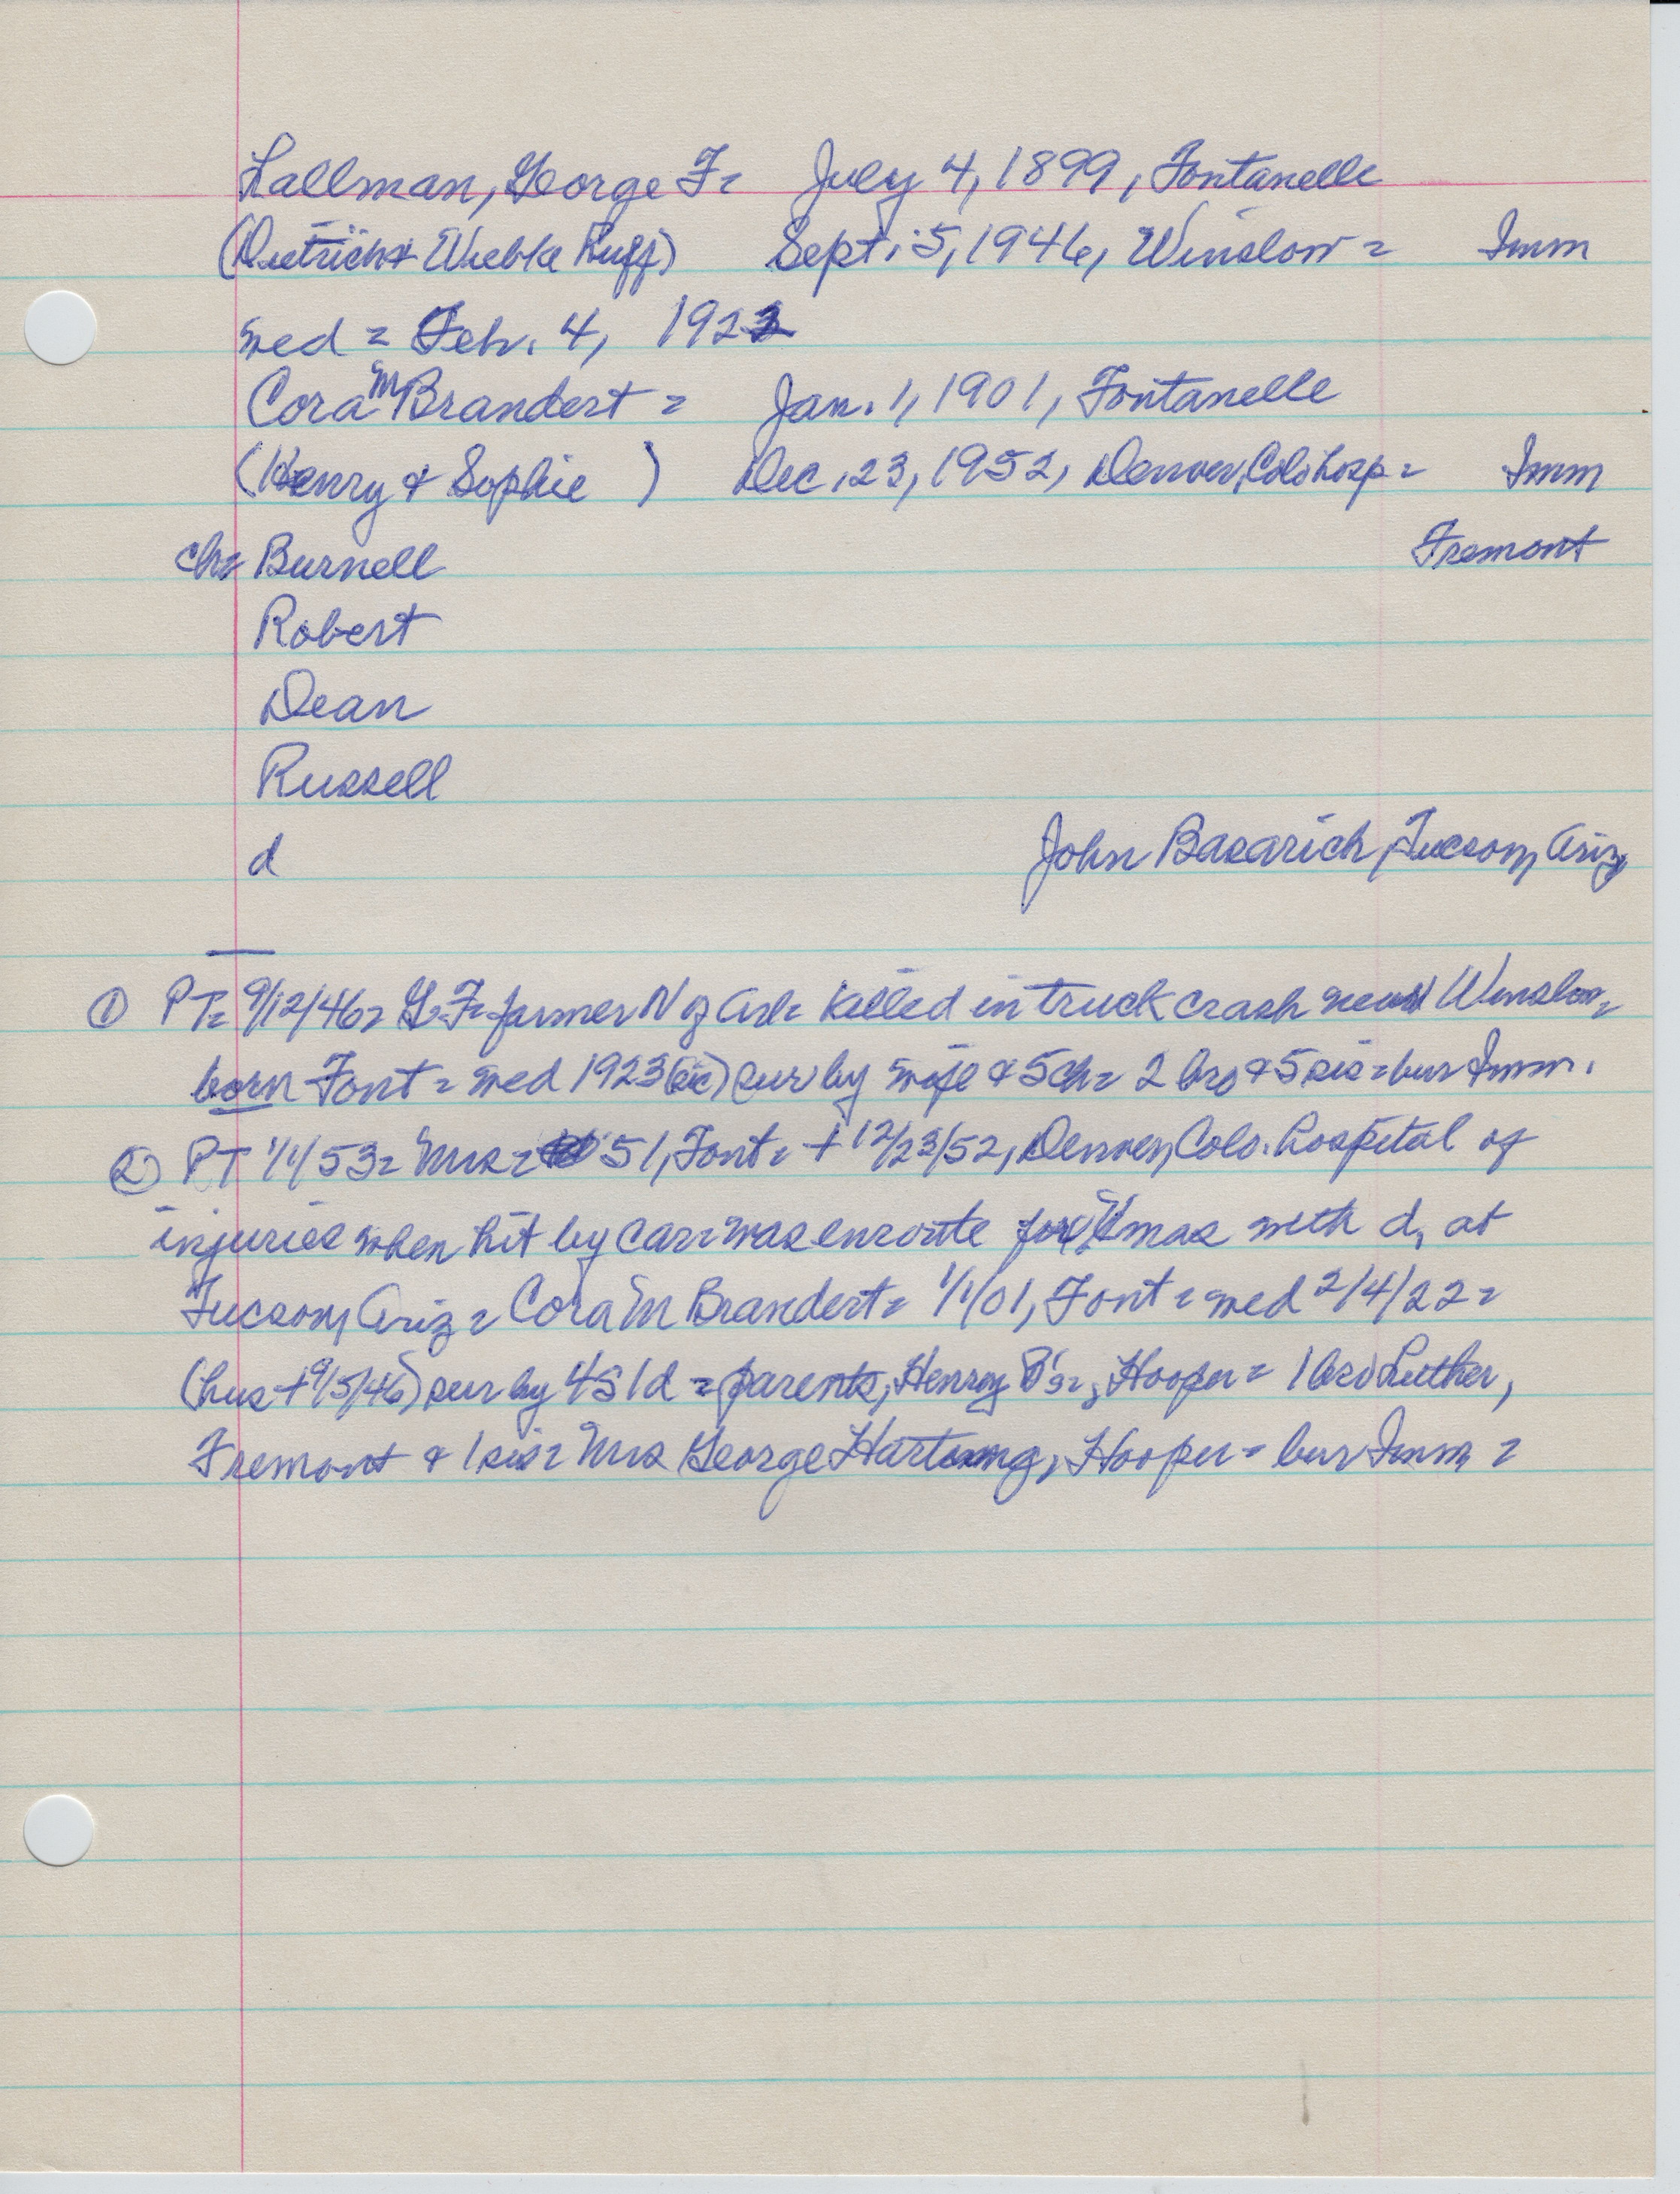 Lallman, George F= July 4, 1899, Fontanelle
(Dietrich & Wiebke Ruff) Sept. 5, 1946, Winslow = Imm
wed = Feb. 4, 1922
Cora M Brandert = Jan. 1, 1901, Fontanelle
(Henry & Sophie ) Dec. 23, 1952, Denver, Colo hosp = Imm
ch= Burnell Fremont
Robert
Dean
Russell
d John Basarich, Tucson, Ariz
① PT= 9/12/46= G.F= farmer N of Arl= killed in truck crash near Winslow=
born Font = wed 1923 (sic) sur by wife & 5 ch= 2 bro & 5 sis = bur Imm.
② PT 1/1/53= Mrs = 51, Font= + 12/23/52, Denver, Colo. hospital of
injuries when hit by car= was enroute for Xmas with d, at
Tucson, Ariz = Cora M Brandert= 1/1/01, Font = wed 2/4/22 =
(hus + 9/5/46) sur by 4s 1d = parents, Henry B's=, Hooper = 1 bro Luther,
Fremont & 1 sis= Mrs George Hartung, Hooper = bur Imm =